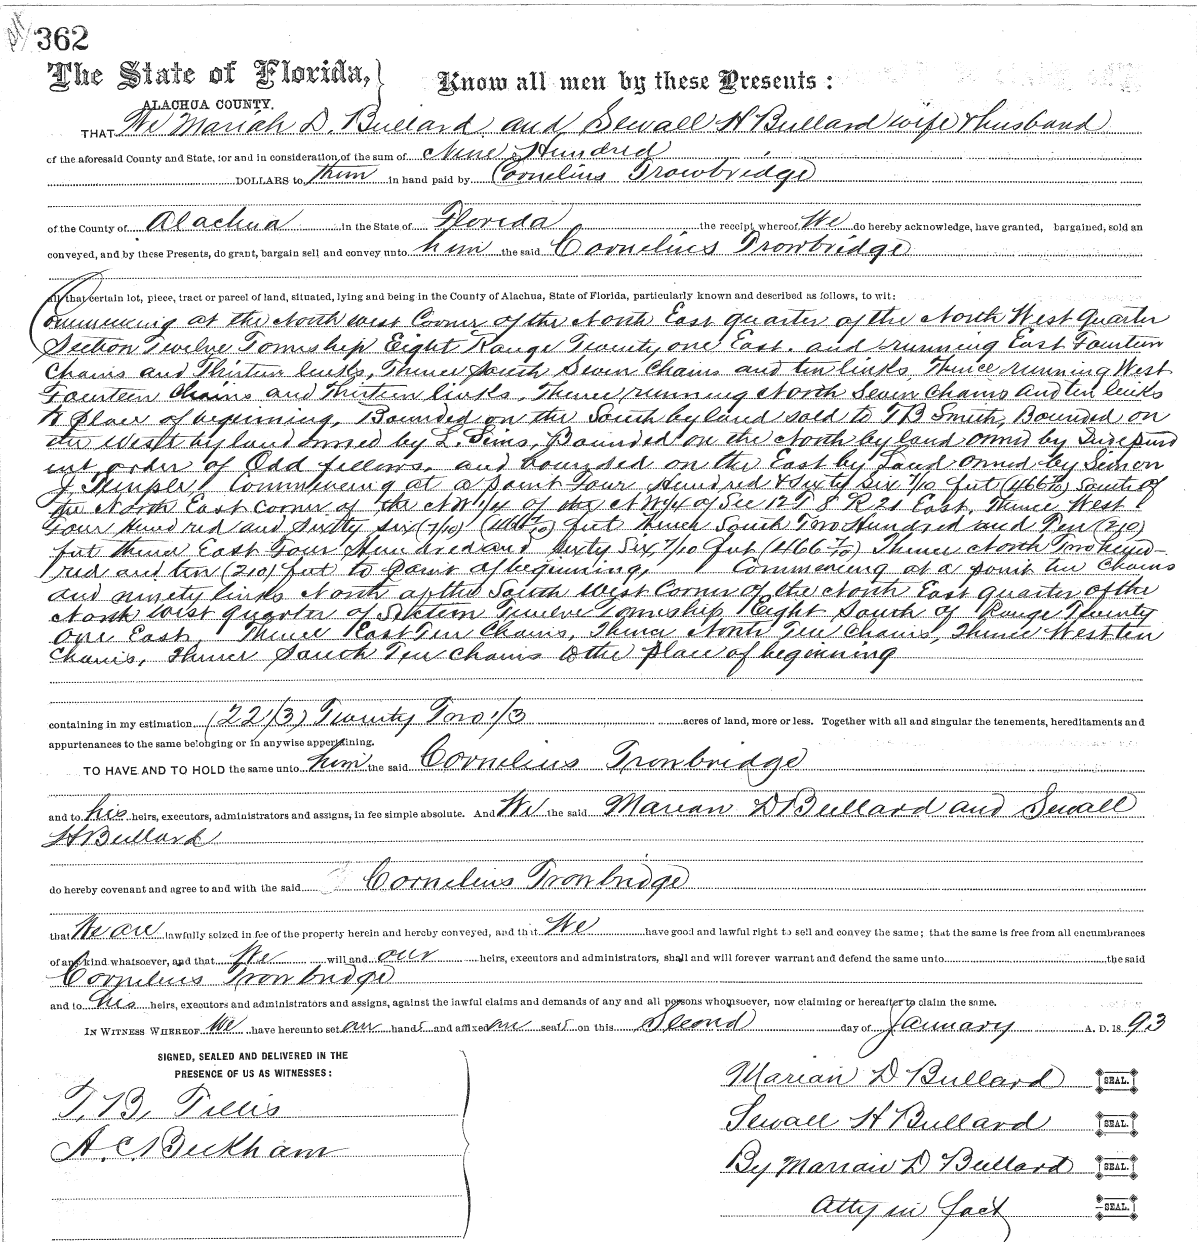 362
The State of Florida, } Know all men by these Presents :
ALACHUA COUNTY.
THAT We Mariah D. Bullard and Sewall H Bullard wife & husband
of the aforesaid County and State, for and in consideration of the sum of Nine Hundred
DOLLARS to them in hand paid by Cornelius Trowbridge
of the County of Alachua in the State of Florida the receipt whereof We do hereby acknowledge, have granted, bargained, sold an
conveyed, and by these Presents, do grant, bargain sell and convey unto him the said Cornelius Trowbridge
all that certain lot, piece, tract or parcel of land, situated, lying and being in the County of Alachua, State of Florida, particularly known and described as follows, to wit:
Commencing at the North west Corner of the North East quarter of the North West Quarter
Section Twelve Township Eight Range Twenty one East. and running East Fourteen
Chains and Thirteen links, Thence South Seven Chains and ten links, Thence running West
Fourteen Chains and Thirteen links. Thence running North Seven Chains and ten links
to place of beginning, Bounded on the South by land sold to T B Smith, Bounded on
the West by land owned by L. Sims, Bounded on the North by land owned by Independ
ent order of Odd fellows, and bounded on the East by Land owned by Simon
J. Temple, Commencing at a point Four Hundred & sixty six 7/10 feet (466 7/10) South of
the North East corner of the N W 1/4 of the N W 1/4 of Sec 12 T 8 R 21 East. Thence West
Four Hund red and Sixty six (7/10) (466 7/10) feet Thence South Two Hundred and Ten (210)
feet thence East Four Hundred and Sixty Six 7/10 feet (466 7/10) Thence North Two Hund-
red and ten (210) feet to point of beginning, Commencing at a point ten Chains
and ninety links North of the South West Corner of the North East quarter of the
North West quarter of Section Twelve Township Eight South of Range Twenty
one East, Thence East Ten Chains, Thence North Ten Chains, Thence West ten
Chains, Thence South Ten Chains to the place of beginning
containing in my estimation (22 1/3) Twenty Two 1/3 acres of land, more or less. Together with all and singular the tenements, hereditaments and
appurtenances to the same belonging or in anywise appertaining.
TO HAVE AND TO HOLD the same unto him the said Cornelius Trowbridge
and to his heirs, executors, administrators and assigns, in fee simple absolute. And We the said Marian D Bullard and Sewall
H Bullard
do hereby covenant and agree to and with the said Cornelius Trowbridge
that We are lawfully seized in fee of the property herein and hereby conveyed, and that We have good and lawful right to sell and convey the same; that the same is free from all encumbrances
of any kind whatsoever, and that We will and our heirs, executors and administrators, shall and will forever warrant and defend the same unto the said
Cornelius Trowbridge
and to his heirs, executors and administrators and assigns, against the lawful claims and demands of any and all persons whomsoever, now claiming or hereafter to claim the same.
IN WITNESS WHEREOF We have hereunto set our hands and affixed our seals on this Second day of January A. D. 1893
SIGNED, SEALED AND DELIVERED IN THE
PRESENCE OF US AS WITNESSES:
T. B. Tillis
A. C. Beckham
Marian D Bullard SEAL.
Sewall H Bullard SEAL.
By Marian D Bullard SEAL.
Atty in fact SEAL.